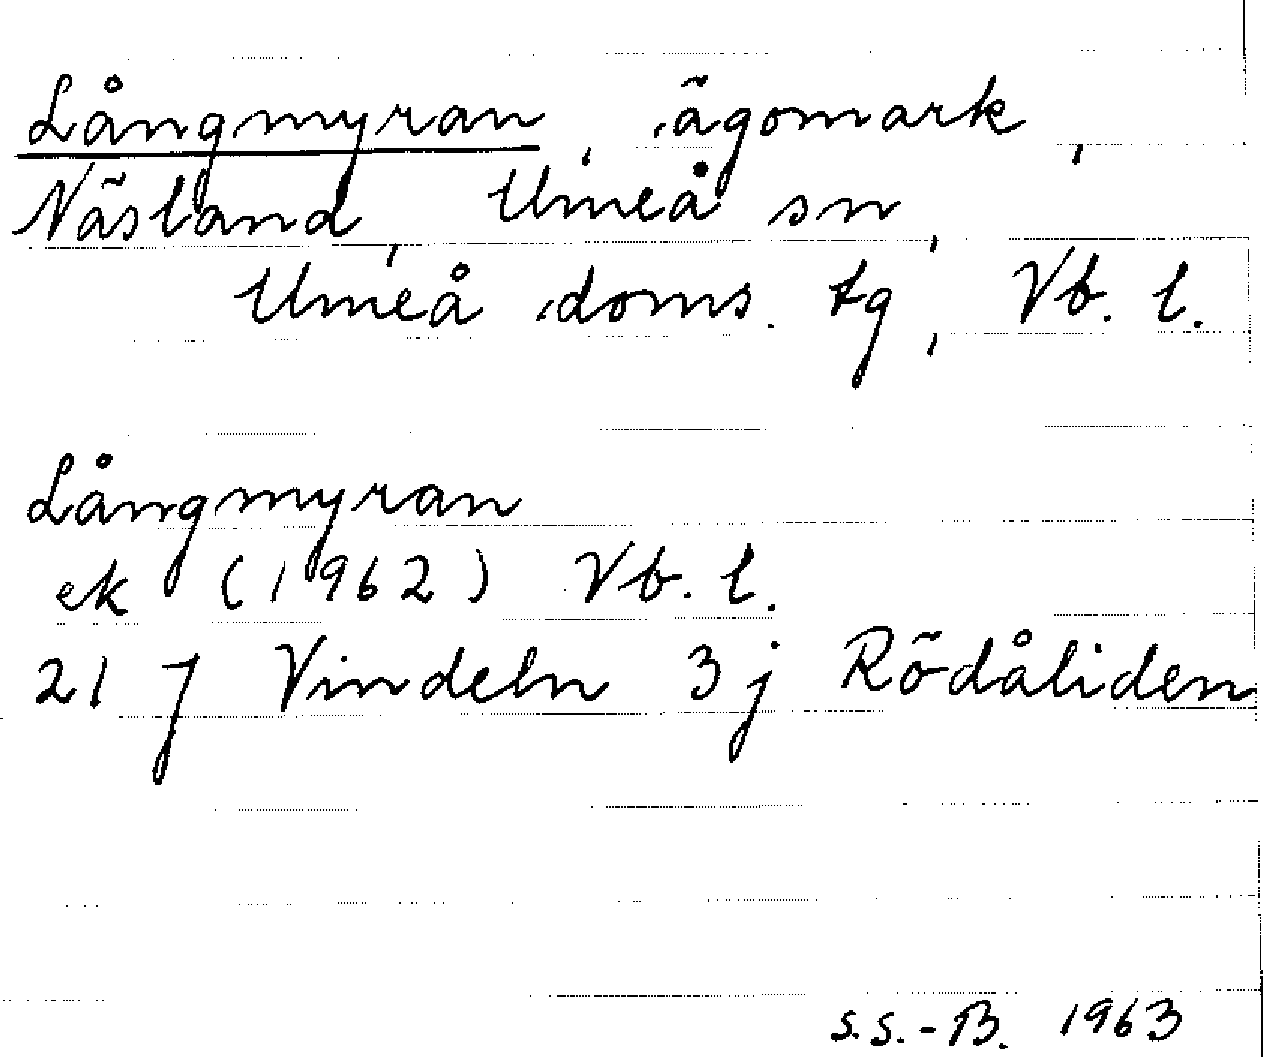 Långmyran, ägomark,
Näsland, Umeå sn,
Umeå doms. tg, Vb. l.
Långmyran
ek (1962) Vb. l.
21 J Vindeln 3j Rödåliden
S.S.-B. 1963